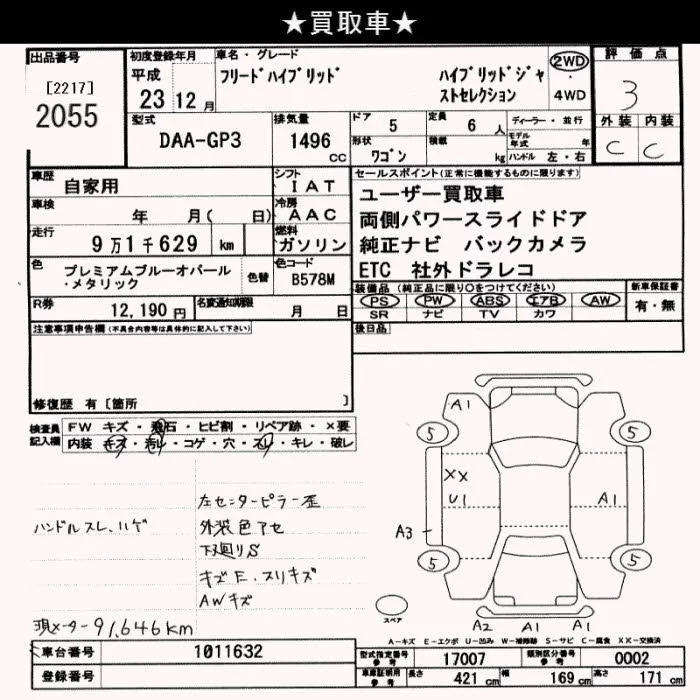 ★買取車★
出品番号
[2217]
2055
初度登録年月
平成
23 12 月
車名・グレード
フリードハイブリッド
ハイブリッドジャストセレクション
2WD
・
4WD
評価点
3
外装 内装
C C
型式
DAA-GP3
排気量
1496
CC
ドア
5
定員
6 人
形状
ワゴン
積載
kg
ディーラー・並行
モデル年式 年
ハンドル 左・右
車歴
自家用
シフト
IAT
車検
年 月( 日)
冷房
AAC
走行
9万1千629 km
燃料
ガソリン
色
プレミアムブルーオパール
・メタリック
色替
色コード
B578M
R券
12,190 円
名変通知期限
月 日
セールスポイント(正常に機能するものに限ります)
ユーザー買取車
両側パワースライドドア
純正ナビ バックカメラ
ETC 社外ドラレコ
装備品(純正品に限り○をつけてください)
PS PW ABS エアB AW
SR ナビ TV カワ
新車保証書
有・無
後日品
注意事項申告欄(不具合内容等は具体的に記入して下さい)
修復歴 有 [箇所 ]
検査員
記入欄
FW キズ・飛石・ヒビ割・リペア跡・×要
内装 キズ・汚レ・コゲ・穴・スレ・キレ・破レ
左センターピラー歪
ハンドルスレ、ハゲ
外装色アセ
下廻りS
キズE、スリキズ
AWキズ
現メーター91,646km
A1
5
5
XX
U1
A1
A3
5
5
スペア
A2 A1 A1
A-キズ E-エクボ U-凹み W-補修跡 S-サビ C-腐食 XX-交換済
車台番号
1011632
登録番号
型式指定番号
参考
17007
類別区分番号
参考
0002
車庫証明用
参考
長さ
421 cm
幅
169 cm
高さ
171 cm